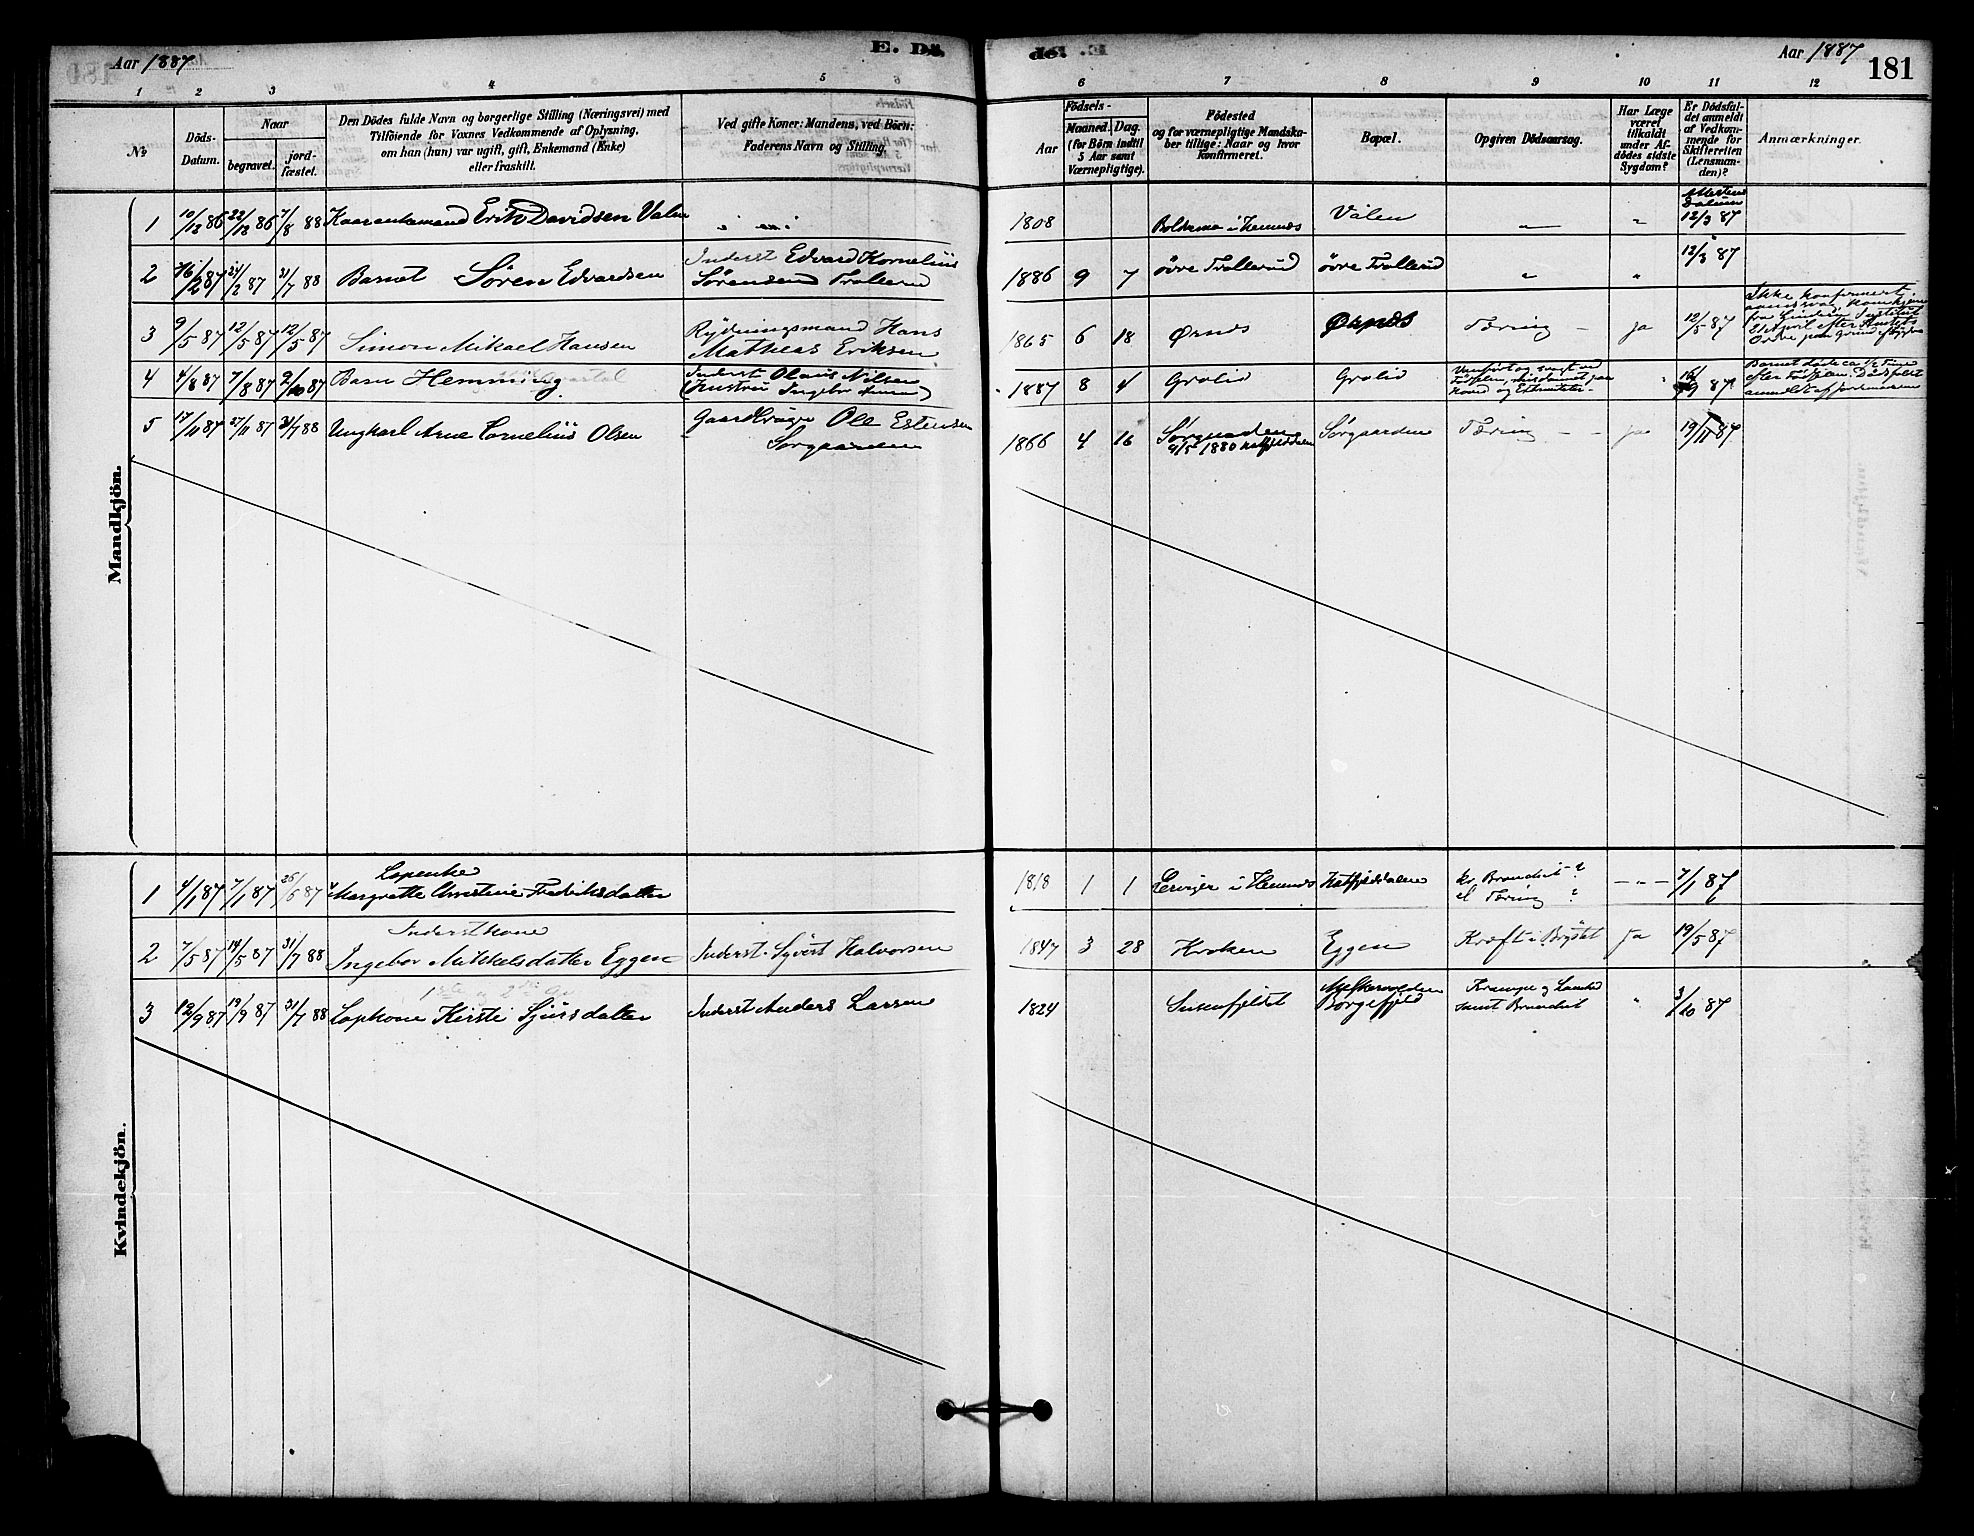 Aar 1887
E. Dö
de. E.
Aar 1887
181
1 2 3 4 5
6 7 8 9 10 11 12
№
Döds-
Datum.
Naar
begravet.
jord-
fæstet.
Den Dödes fulde Navn og borgerlige Stilling (Næringsvei) med
Tilföiende for Voxnes Vedkommende af Oplysning,
om han (hun) var ugift, gift, Enkemand (Enke)
eller fraskilt.
Ved gifte Koner: Mandens, ved Börn:
Faderens Navn og Stilling.
Födsels-
Aar
Maaned. Dag.
(for Börn indtil
5 Aar samt
Værnepligtige).
Födested
og for værnepligtige Mandska-
ber tillige: Naar og hvor
konfirmeret.
Bopæl.
Opgiven Dödsaarsag.
Har Læge
været
tilkaldt
under Af-
dödes sidste
Sygdom?
Er Dödsfal-
det anmeldt
af Vedkom-
mende for
Skifteretten
(Lensman-
den)?
Anmærkninger.
Mandkjön.
1 10/12 86 22/12 86 7/8 88 Kaarenkemand Erik Davidsen Valen
1808 i Hemnes Válen " 12/3 87
2 16/2 87 24/2 87 31/7 88 Barnet Sören Edvardsen
Inderst Edvard Kornelius
Sørensen Trollerud
1886 9 7 övre Trollerud övre Trollerud " " 12/3 87
3 9/5 87 12/5 87 12/5 87 Simon Mikael Hansen
Rydningsmand Hans
Mathias Eriksen
1865 6 18 Ørnes Ørnes Tæring - ja 12/5 87
Ikke konfirmert
4 4/8 87 7/8 87 2/10 87 Barn Hemming
Inderst Olaus Nilsen
(Hustru Ingebor Anna)
1887 8 4 Grølid Grølid
Barnet døde ca 1/2 Time
efter Födselen. Dødsfaldet
5 17/11 87 27/11 87 31/7 88 Ungkarl Arne Cornelius Olsen
Gaardbruger Ole Estensen
Sørgaarden
1866 4 16 Sørgaarden Sørgaarden Tæring - - ja 19/11 87
4/5 1880 Hatfjelddalen
Kvindekjön.
Lapenke
1 4/1 87 7/1 87 26/6 87 Margrethe Christine Fredriksdatter
1818 1 1 i Hemnes Hatfjelddalen Br. Brændet - ?
el Tæring ?
- " - 7/1 87
Inderstkone
2 7/5 87 19/5 87 31/7 88 Ingebor Mikkelsdatter Eggen Inderst. Syvert Halvorsen
1847 3 28 Kroken Eggen Kræft i Brystet Ja 19/5 87
3 12/9 87 19/9 87 31/7 88 Lapkone Kirsti Sjursdatter Inderst Anders Larsen
1824 Susenfjeldet
Børgefjeld
samt Brændet " 3/10 87